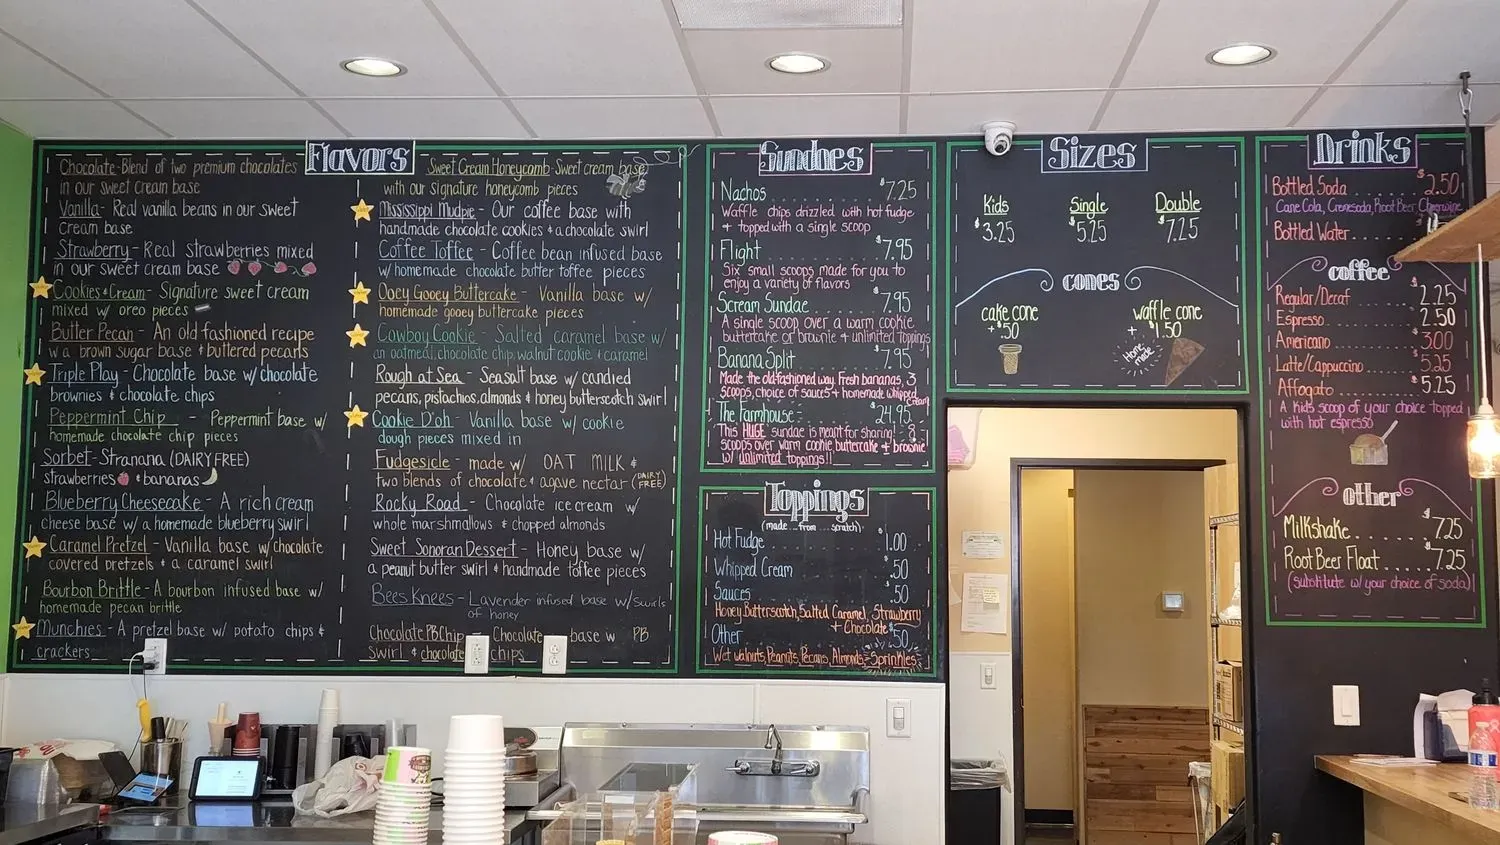 Flavors
Chocolate-Blend of two premium chocolates
in our sweet cream base
Vanilla- Real vanilla beans in our sweet
cream base
Strawberry- Real strawberries mixed
in our sweet cream base
Cookies & Cream- Signature sweet cream
mixed w/ oreo pieces
Butter Pecan- An old fashioned recipe
w a brown sugar base & buttered pecans
Triple Play- Chocolate base w/ chocolate
brownies & chocolate chips
Peppermint Chip - Peppermint base w/
homemade chocolate chip pieces
Sorbet- Stranana (DAIRY FREE)
strawberries & bananas
Blueberry Cheesecake- A rich cream
cheese base w/ a homemade blueberry swirl
Caramel Pretzel- Vanilla base w/ chocolate
covered pretzels & a caramel swirl
Bourbon Brittle- A bourbon infused base w/
homemade pecan brittle
Munchies- A pretzel base w/ potato chips &
crackers
Sweet Cream Honeycomb- Sweet cream base
with our signature honeycomb pieces
Mississippi Mudpie- Our coffee base with
handmade chocolate cookies & a chocolate swirl
Coffee Toffee- Coffee bean infused base
w/ homemade chocolate butter toffee pieces
Ooey Gooey Buttercake- Vanilla base w/
homemade gooey buttercake pieces
Cowboy Cookie- Salted caramel base w/
an oatmeal, chocolate chip, walnut cookie & caramel
Rough at Sea- Seasalt base w/ candied
pecans, pistachios, almonds & honey butterscotch swirl
Cookie D'oh- Vanilla base w/ cookie
dough pieces mixed in
Fudgesicle- made w/ OAT MILK &
two blends of chocolate & agave nectar (DAIRY FREE)
Rocky Road- Chocolate ice cream w/
whole marshmallows & chopped almonds
Sweet Sonoran Dessert- Honey base w/
a peanut butter swirl & handmade toffee pieces
Bees Knees- Lavender infused base w/ swirls
of honey
Chocolate PB Chip- Chocolate base w PB
swirl & chocolate chips
Sundaes
Nachos $7.25
Waffle chips drizzled with hot fudge
& topped with a single scoop
Flight $7.95
Six small scoops made for you to
enjoy a variety of flavors
Scream Sundae $7.95
A single scoop over a warm cookie,
buttercake or brownie & unlimited toppings
Banana Split $7.95
Made the old-fashioned way. Fresh bananas, 3
scoops, choice of sauces & homemade whipped cream
The Farmhouse- $24.95
This HUGE sundae is meant for sharing!- 8
scoops over warm cookie, buttercake & brownie
w/ unlimited toppings!!
Toppings
(made from scratch)
Hot Fudge $1.00
Whipped Cream $.50
Sauces $.50
Honey Butterscotch, Salted Caramel, Strawberry
+ Chocolate
Other $.50
Wet walnuts, Peanuts, Pecans, Almonds, Sprinkles
Sizes
Kids Single Double
$3.25 $5.25 $7.25
cones
cake cone waffle cone
+ $.50 + $1.50
Home made
Drinks
Bottled Soda $2.50
Cane Cola, Cremesoda, Root Beer, Cheerwine
Bottled Water
coffee
Regular/Decaf $2.25
Espresso 2.50
Americano 3.00
Latte/Cappuccino 5.25
Affogato $5.25
A Kids scoop of your choice topped
with hot espresso
other
Milkshake $7.25
Root Beer Float $7.25
(substitute w/ your choice of soda)